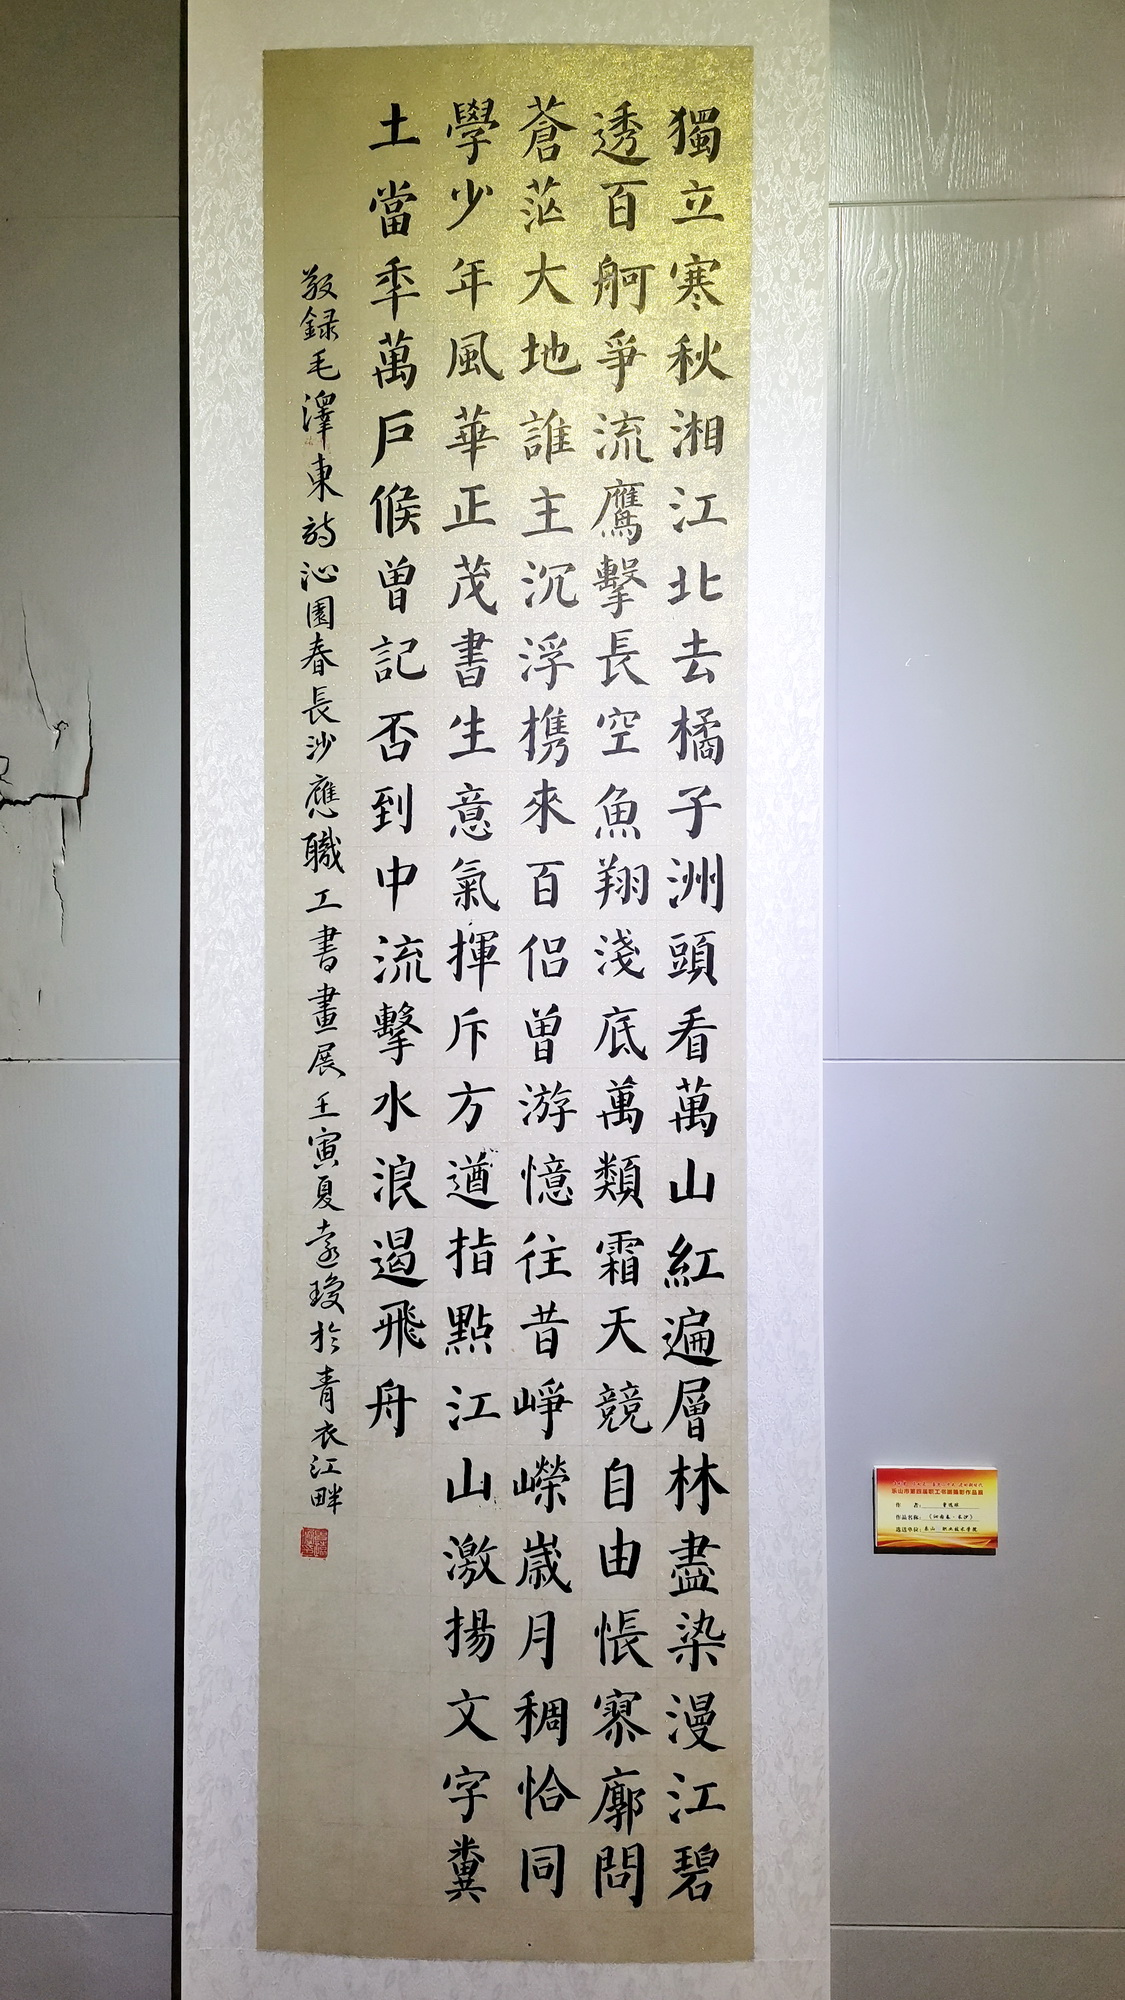 獨立寒秋湘江北去橘子洲頭看萬山紅遍層林盡染漫江碧
透百舸爭流鷹擊長空魚翔淺底萬類霜天競自由悵寥廓問
蒼茫大地誰主沉浮携來百侣曾游憶往昔崢嶸歲月稠恰同
學少年風華正茂書生意氣揮斥方遒指點江山激揚文字糞
土當年萬戶侯曾記否到中流擊水浪遏飛舟
敬録毛澤東詩沁園春長沙應職工書畫展壬寅夏遠瓊於青衣江畔
乐山市第四届职工书画摄影作品展
作 者：
作品名称：《沁园春·长沙》
选送单位：乐山 职业技术学院